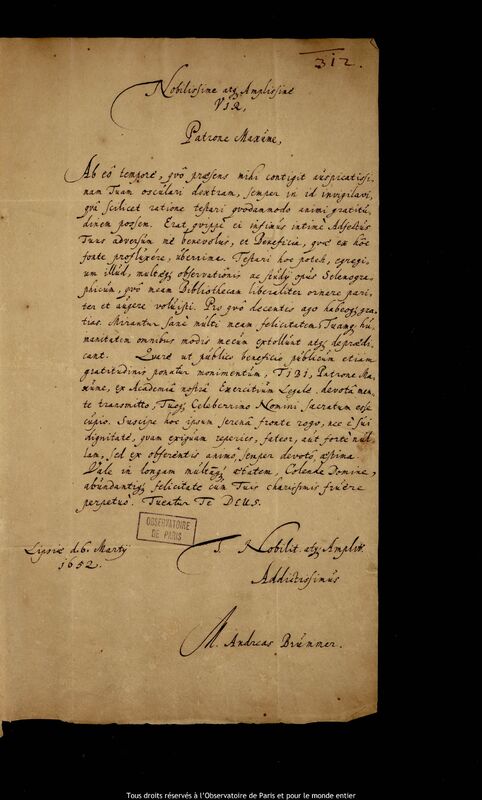 312.
Nobilissime atq; Amplissime
VIR,
Patrone Maxime,
Ab eô tempore, qvô præsens mihi contigit auspicatissi-
mam Tuam osculari dextram, semper in id invigilavi,
qvâ scilicet ratione testari qvodammodo animi gratitu-
dinem possem. Erat qvippe ei insinus intimi Adfectus
Tuus adversùm mè benevolus, et Beneficia, qvæ ex hôc
fonte profluxere, uberrima. Testari hoc potest, egregi-
um illud, multæq; observationis ac studij opus Selenogra-
phicum, qvô meam Bibliothecam liberaliter ornare pari-
ter et augere voluisti. Pro qvô decentes ago habeoq; gra-
tias. Mirantur sanè multi meam felicitatem, Tuamq; hu-
manitatem omnibus modis mecum extollunt atq; deprædi-
cant. Qvare ut publico beneficio publicum etiam
gratitudinis ponatur monimentum, TIBI, Patrone Ma-
xime, ex Academiâ nostrâ Exercitium Legale devotâ men-
te transmitto, Tuoq; Celeberrimo Nomini Sacratum esse
cupio. Suscipe hoc ipsum serenâ fronte rogo, nec è sui
dignitate, qvam exiguam reperies, fateor, aut fortè nul-
lam, sed ex offerentis animô semper devotô æstima.
Vale in longam multamq; ætatem, Colende Domine,
abundantiq; felicitate cum Tuis charissimis fruere
perpetuô. Tueatur Te DEUS.
OBSERVATOIRE
DE PARIS
Lipsiæ d. 6. Martij
1652.
T. Nobilit. atq; Amplit.
Addictissimus
M. Andreas Brummer.
Tous droits réservés à l'Observatoire de Paris et pour le monde entier